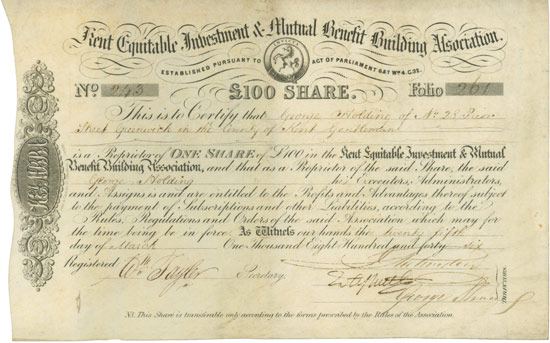 Kent Equitable Investment & Mutual Benefit Building Association.
INVICTA
ESTABLISHED PURSUANT TO ACT OF PARLIAMENT 6 & 7 Wm 4. C. 32.
No 243 £100 SHARE. Folio 261
This is to Certify that George Holding of No 28 Prior
Street Greenwich in the County of Kent Gentleman
is a Proprietor of ONE SHARE of £100 in the Kent Equitable Investment & Mutual
Benefit Building Association, and that as a Proprietor of the said Share, the said
George Holding his Executors, Administrators,
and Assigns is and are entitled to the Profits and Advantages thereof subject
to the payment of Subscriptions and other Liabilities, according to the
Rules, Regulations and Orders of the said Association which may for
the time being be in force. As Witness our hands the twenty fifth
day of March One Thousand Eight Hundred and forty six
Registered Wm Taylor Secretary.
George
DIRECTORS
NB. This Share is transferable only according to the forms prescribed by the Rules of the Association.